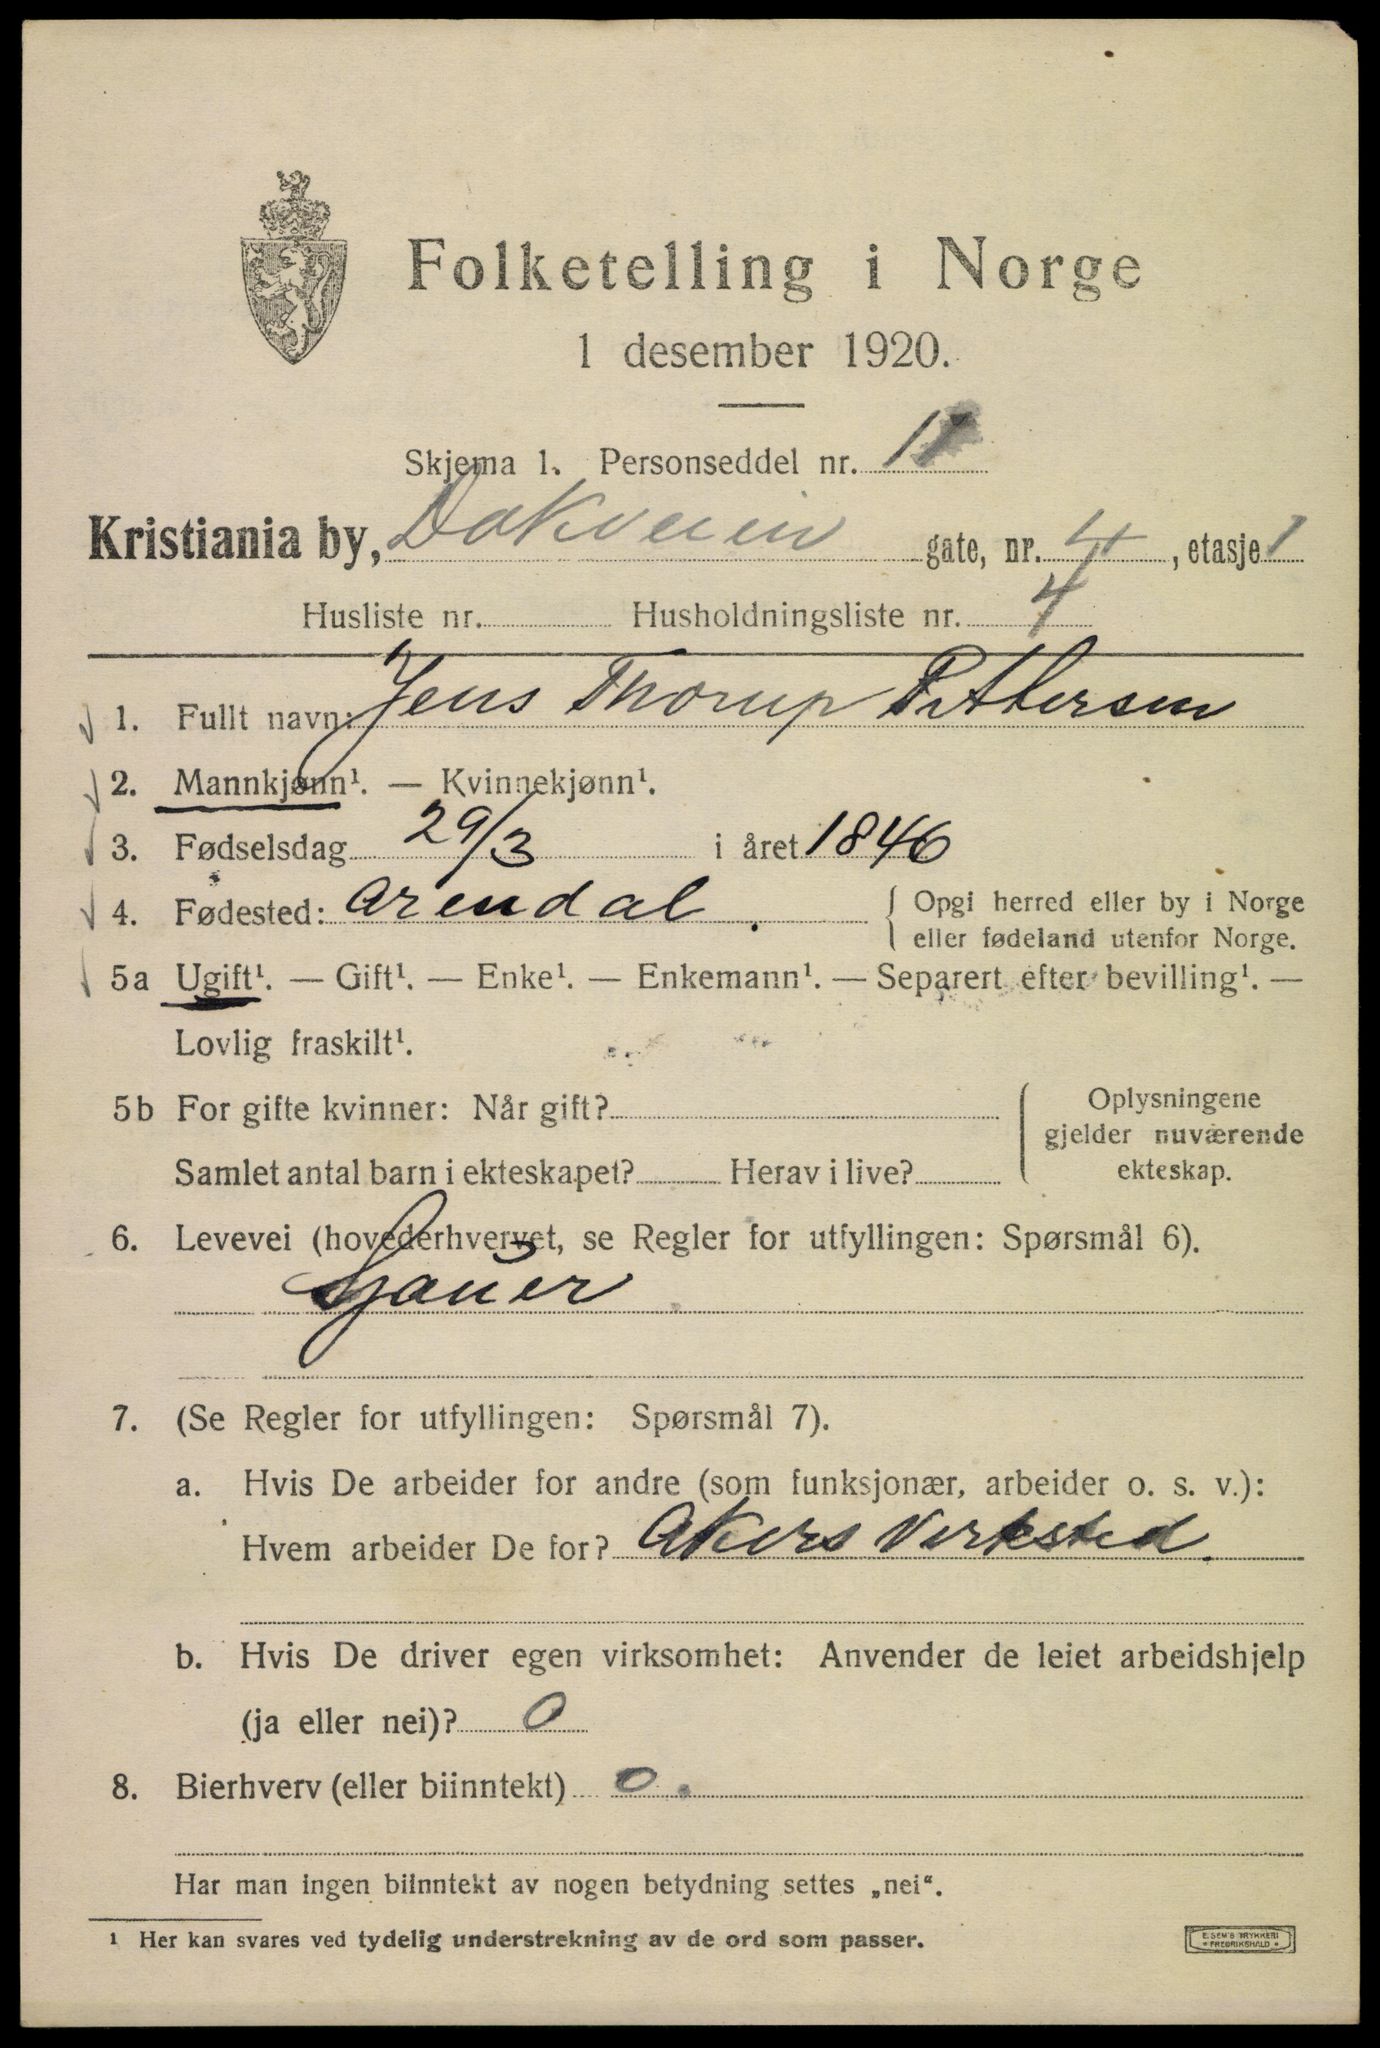 Folketelling i Norge
1 desember 1920.
Skjema 1. Personseddel nr. 1
Kristiania by, Dokveien gate, nr. 4, etasje 1
Husliste nr. Husholdningsliste nr. 4
1. Fullt navn: Jens Thorup Pettersen
2. Mannkjønn¹. — Kvinnekjønn¹.
3. Fødselsdag 29/3 i året 1846
4. Fødested: Arendal. Opgi herred eller by i Norge
eller fødeland utenfor Norge.
5a Ugift¹. — Gift¹. — Enke¹. — Enkemann¹. — Separert efter bevilling¹. —
Lovlig fraskilt¹.
5b For gifte kvinner: Når gift? Oplysningene
gjelder nuværende
Samlet antal barn i ekteskapet? Herav i live? ekteskap.
6. Levevei (hovederhvervet, se Regler for utfyllingen: Spørsmål 6).
7. (Se Regler for utfyllingen: Spørsmål 7).
a. Hvis De arbeider for andre (som funksjonær, arbeider o. s. v.):
Hvem arbeider De for? Akers Verksted.
b. Hvis De driver egen virksomhet: Anvender de leiet arbeidshjelp
(ja eller nei)? 0
8. Bierhverv (eller biinntekt) 0.
Har man ingen biinntekt av nogen betydning settes „nei“.
¹ Her kan svares ved tydelig understrekning av de ord som passer.
E. SEM'S TRYKKERI
• FREDRIKSHALD •